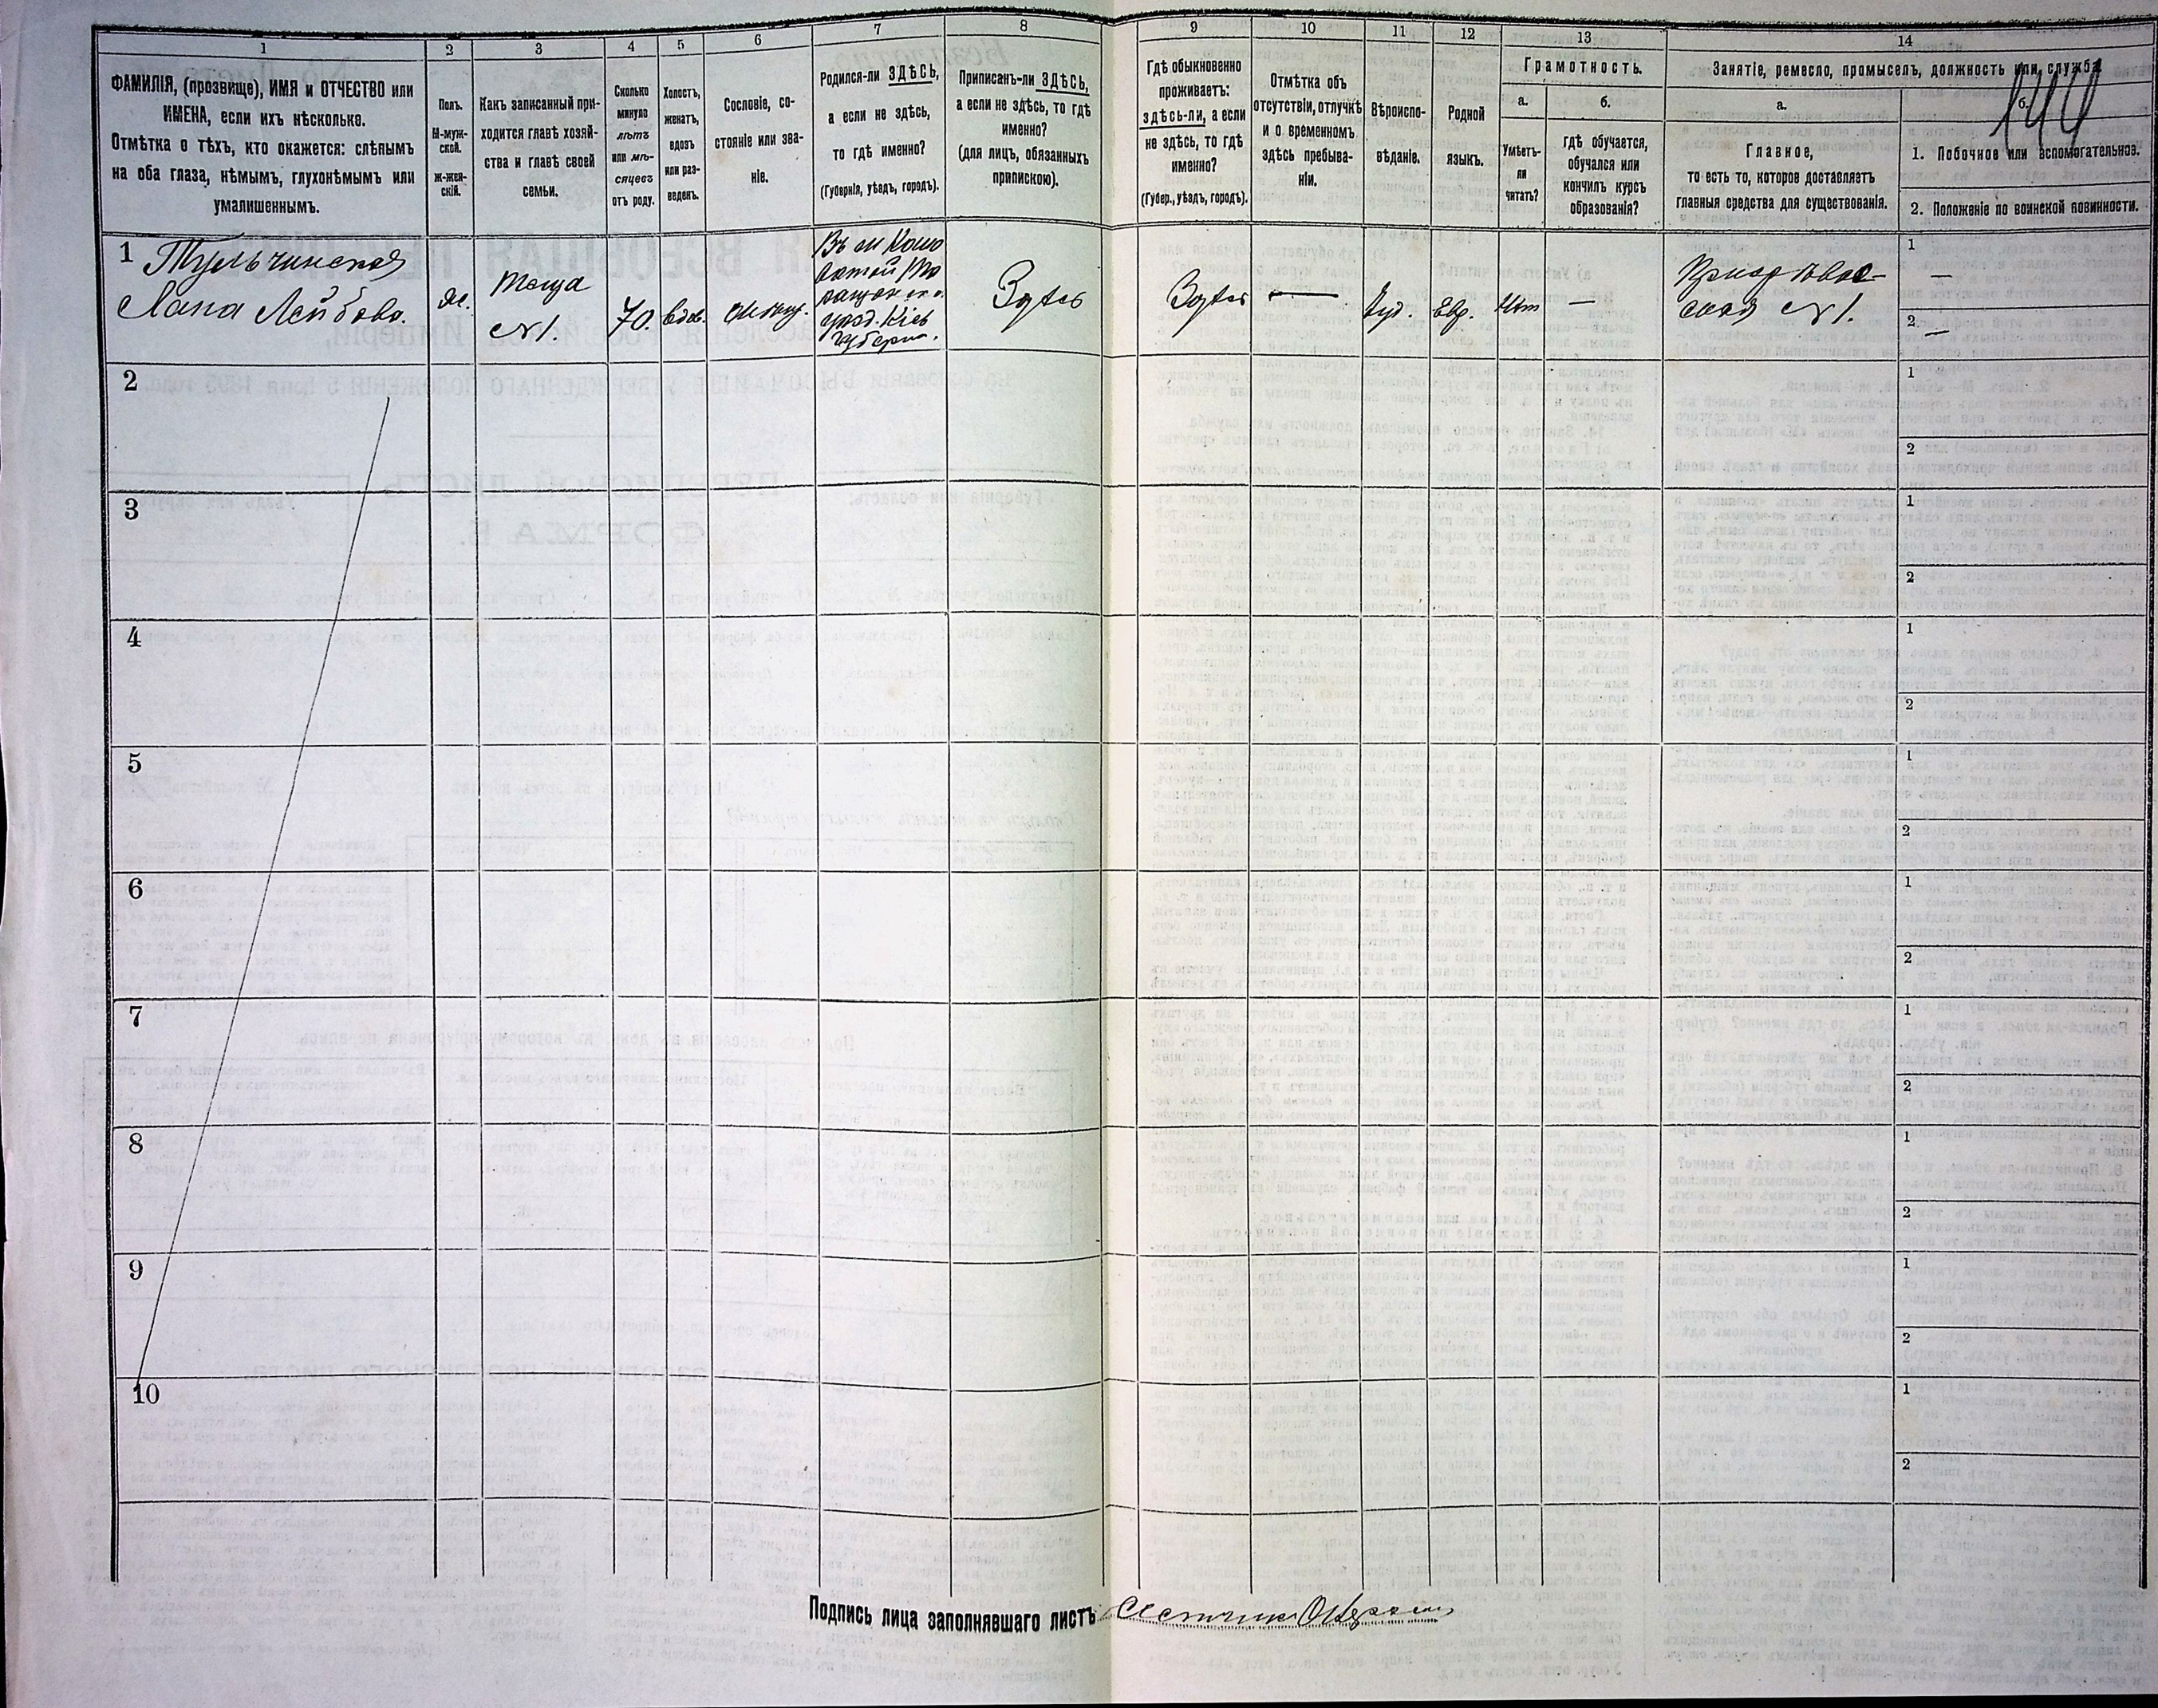 1 2 3 4 5 6 7 8 9 10 11 12 13 14
ФАМИЛІЯ, (прозвище), ИМЯ и ОТЧЕСТВО или
ИМЕНА, если ихъ нѣсколько.
Отмѣтка о тѣхъ, кто окажется: слѣпымъ
на оба глаза, нѣмымъ, глухонѣмымъ или
умалишеннымъ.
Полъ.
М-муж-
ской.
Ж-жен-
скій.
Какъ записанный при-
ходится главѣ хозяй-
ства и главѣ своей
семьи.
Сколько
минуло
лѣтъ
или мѣ-
сяцевъ
отъ роду.
Холостъ,
женатъ,
вдовъ
или раз-
веденъ.
Сословіе, со-
стояніе или зва-
ніе.
Родился-ли ЗДѢСЬ,
а если не здѣсь,
то гдѣ именно?
(Губернія, уѣздъ, городъ).
Приписанъ-ли ЗДѢСЬ,
а если не здѣсь, то гдѣ
именно?
(для лицъ, обязанныхъ
припискою).
Гдѣ обыкновенно
проживаетъ:
здѣсь-ли, а если
не здѣсь, то гдѣ
именно?
(Губер., уѣздъ, городъ).
Отмѣтка объ
отсутствіи, отлучкѣ
и о временномъ
здѣсь пребыва-
ніи.
Вѣроиспо-
вѣданіе.
Родной
языкъ.
Грамотность.
а.
Умѣетъ-
ли
читать?
б.
гдѣ обучается,
обучался или
кончилъ курсъ
образованія?
Занятіе, ремесло, промыселъ, должность или служба.
а.
Главное,
то есть то, которое доставляетъ
главныя средства для существованія.
б.
1. Побочное или вспомогательное.
2. Положеніе по воинской повинности.
1 Тульчинская
Лейбова.
ж.
теща
№ 1.
70.
вдов.
Въ м.
уѣзд. Кіев
губерн.
Здѣсь
Здѣсь
—
Іуд.
Евр.
Нѣт
—
№ 1.
1 —
2 —
2
1
2
3
1
2
4
1
2
5
1
2
6
1
2
7
1
2
8
1
2
9
1
2
10
1
2
Подпись лица заполнявшаго листъ Счетчикъ